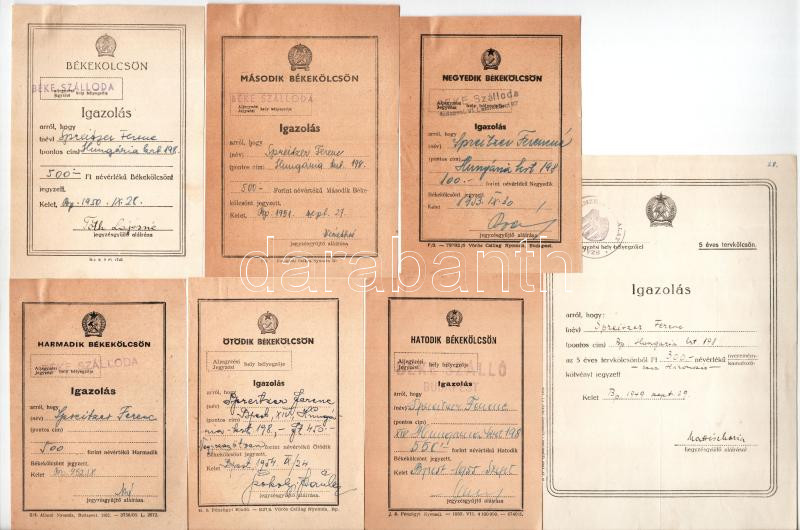 BÉKEKÖLCSÖN
BÉKE SZÁLLODA
Aljegyzési
Jegyzési hely bélyegzője
Igazolás
arról, hogy
(név) Spreitzer Ferenc
(pontos cím) Hungária krt 198.
500 Ft névértékű Békekölcsönt
jegyzett.
Kelet, Bp. 1950. IX. 28.
Tóth Lajosné
jegyzésgyűjtő aláírása
MÁSODIK BÉKEKÖLCSÖN
BÉKE SZÁLLODA
Aljegyzési
Jegyzési hely bélyegzője
Igazolás
arról, hogy
(név) Spreitzer Ferenc
(pontos cím) Hungária krt. 198.
500.- Forint névértékű Második Béke-
kölcsönt jegyzett.
Kelet, Bp. 1951. szept. 29.
jegyzésgyűjtő aláírása
NEGYEDIK BÉKEKÖLCSÖN
BÉKE Szálloda
Aljegyzési
Jegyzési hely bélyegzője
Igazolás
arról, hogy
(név) Spreitzer Ferencné
(pontos cím)
Hungária krt 198
100.- forint névértékű Negyedik
Békekölcsönt jegyzett.
Kelet 1953. IX. 30
jegyzésgyűjtő aláírása
28.
jegyzési hely bélyegzője
5 éves tervkölcsön.
Igazolás
arról, hogy:
(név) Spreitzer Ferenc
(pontos cím) Bp. Hungária krt 198.
az 5 éves tervkölcsönből Ft 300.- névértékű nyeremény-
kamatozó
kötvényt jegyzett
Kelet Bp. 1949 szept. 29.
jegyzésgyűjtő aláírása
HARMADIK BÉKEKÖLCSÖN
BÉKE SZÁLLODA
Aljegyzési
Jegyzési hely bélyegzője
Igazolás
arról, hogy
(név) Spreitzer Ferenc
(pontos cím)
500 forint névértékű Harmadik
Békekölcsönt jegyzett.
Kelet
jegyzésgyűjtő aláírása.
ÖTÖDIK BÉKEKÖLCSÖN
Aljegyzési
Jegyzési hely bélyegzője
Igazolás
arról, hogy
(név) Spreitzer Ferenc
(pontos cím) Bpest, XIV. Hungá-
ria krt 198,
forint névértékű Ötödik
Békekölcsönt jegyzett.
Kelet Bpest, 1954 IX/24
jegyzésgyűjtő aláírása.
HATODIK BÉKEKÖLCSÖN
BÉKE SZÁLLÓ
BUDAPEST
Aljegyzési
Jegyzési hely bélyegzője
Igazolás
arról, hogy
(név) Spreitzer Ferenc
(pontos cím)
XIV Hungária krt 198
550 forint névértékű Hatodik
Békekölcsönt jegyzett.
Kelet Bpest 1955 Szept
jegyzésgyűjtő aláírása.
darabanth